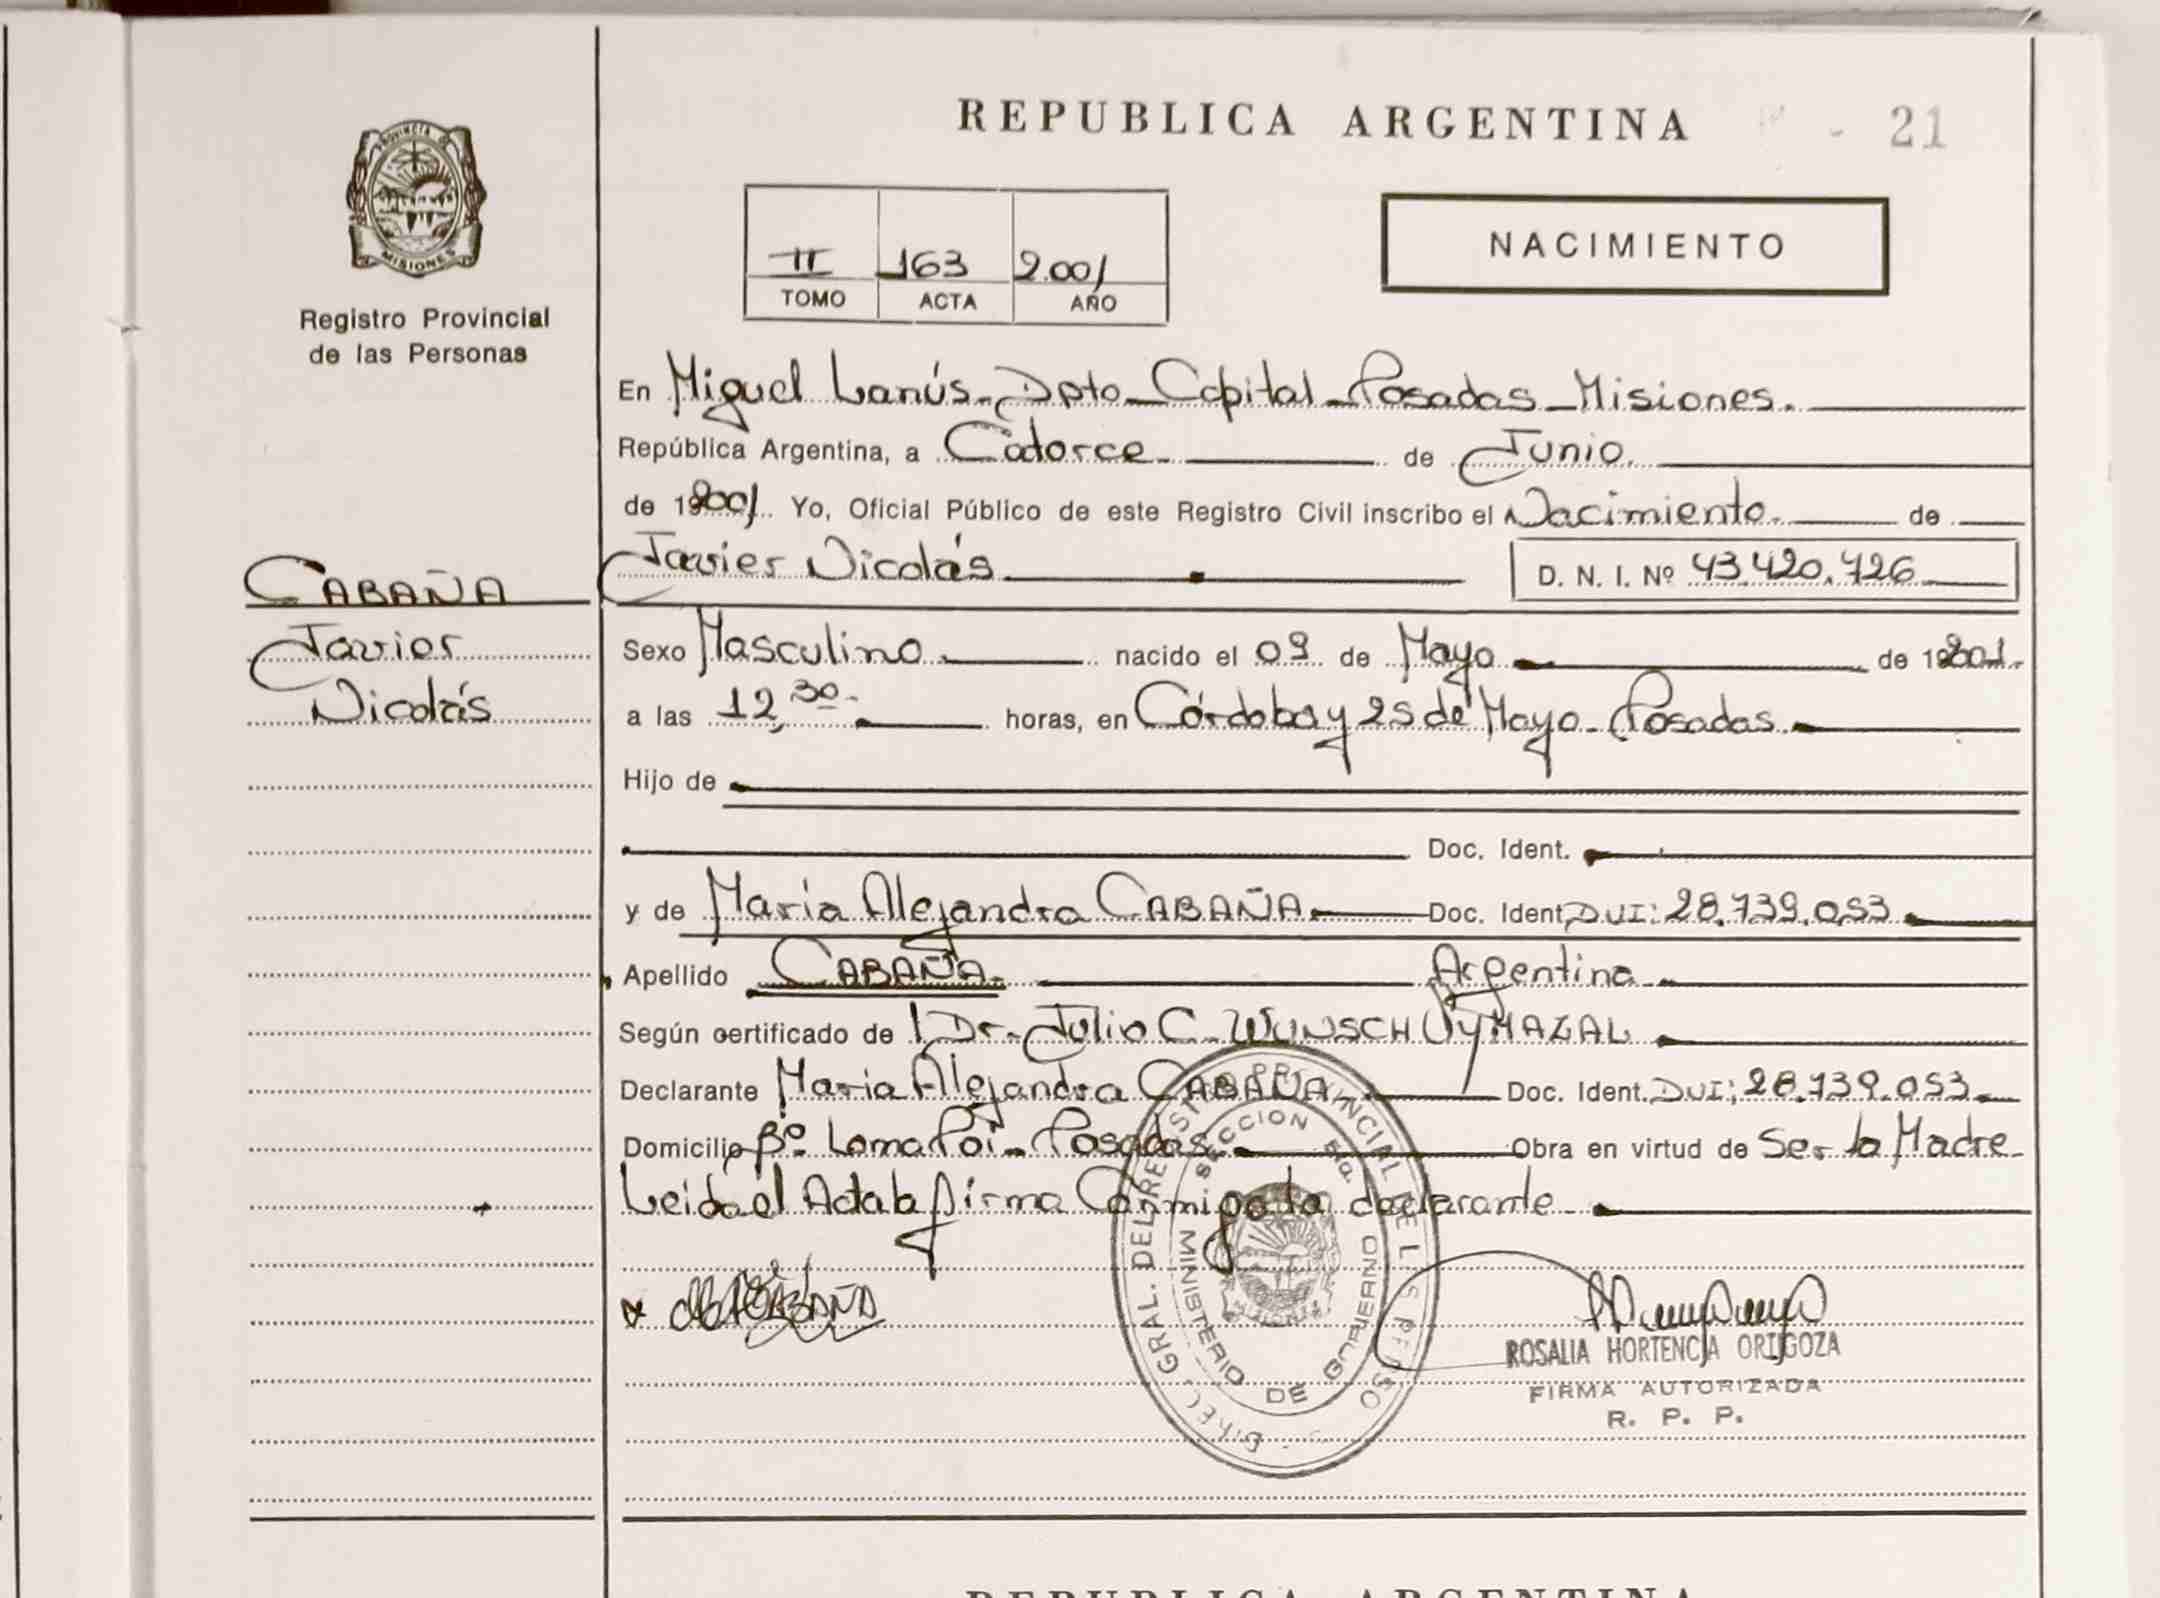 REPUBLICA ARGENTINA
21
PROVINCIA DE MISIONES
Registro Provincial
de las Personas
II 163 2.001
TOMO ACTA AÑO
NACIMIENTO
En Miguel Lanús - Dpto - Capital - Posadas - Misiones.
República Argentina, a Catorce de Junio
de 2001 Yo, Oficial Público de este Registro Civil inscribo el Nacimiento de
CABAÑA
Javier
Nicolás
Javier Nicolás D. N. I. Nº 43.420.726
Sexo Masculino nacido el 09 de Mayo de 2001
a las 12,30 horas, en Córdoba y 25 de Mayo - Posadas
Hijo de
Doc. Ident.
y de María Alejandra CABAÑA Doc. Ident. DUI: 28.739.053
Apellido CABAÑA Argentina
Según certificado de Dr. Julio C. WUNSCH
Declarante María Alejandra CABAÑA Doc. Ident. DUI: 28.739.053
Domicilio Bº Loma Poi - Posadas Obra en virtud de Ser la Madre
Leida el Acta la firma Conmigo la declarante
CABAÑA
DIREC. GRAL. DEL REGISTRO PROVINCIAL DE LAS PERSONAS
SECCION 5ta.
MINISTERIO DE GOBIERNO
ROSALIA HORTENCIA ORTIGOZA
FIRMA AUTORIZADA
R. P. P.
REPUBLICA ARGENTINA